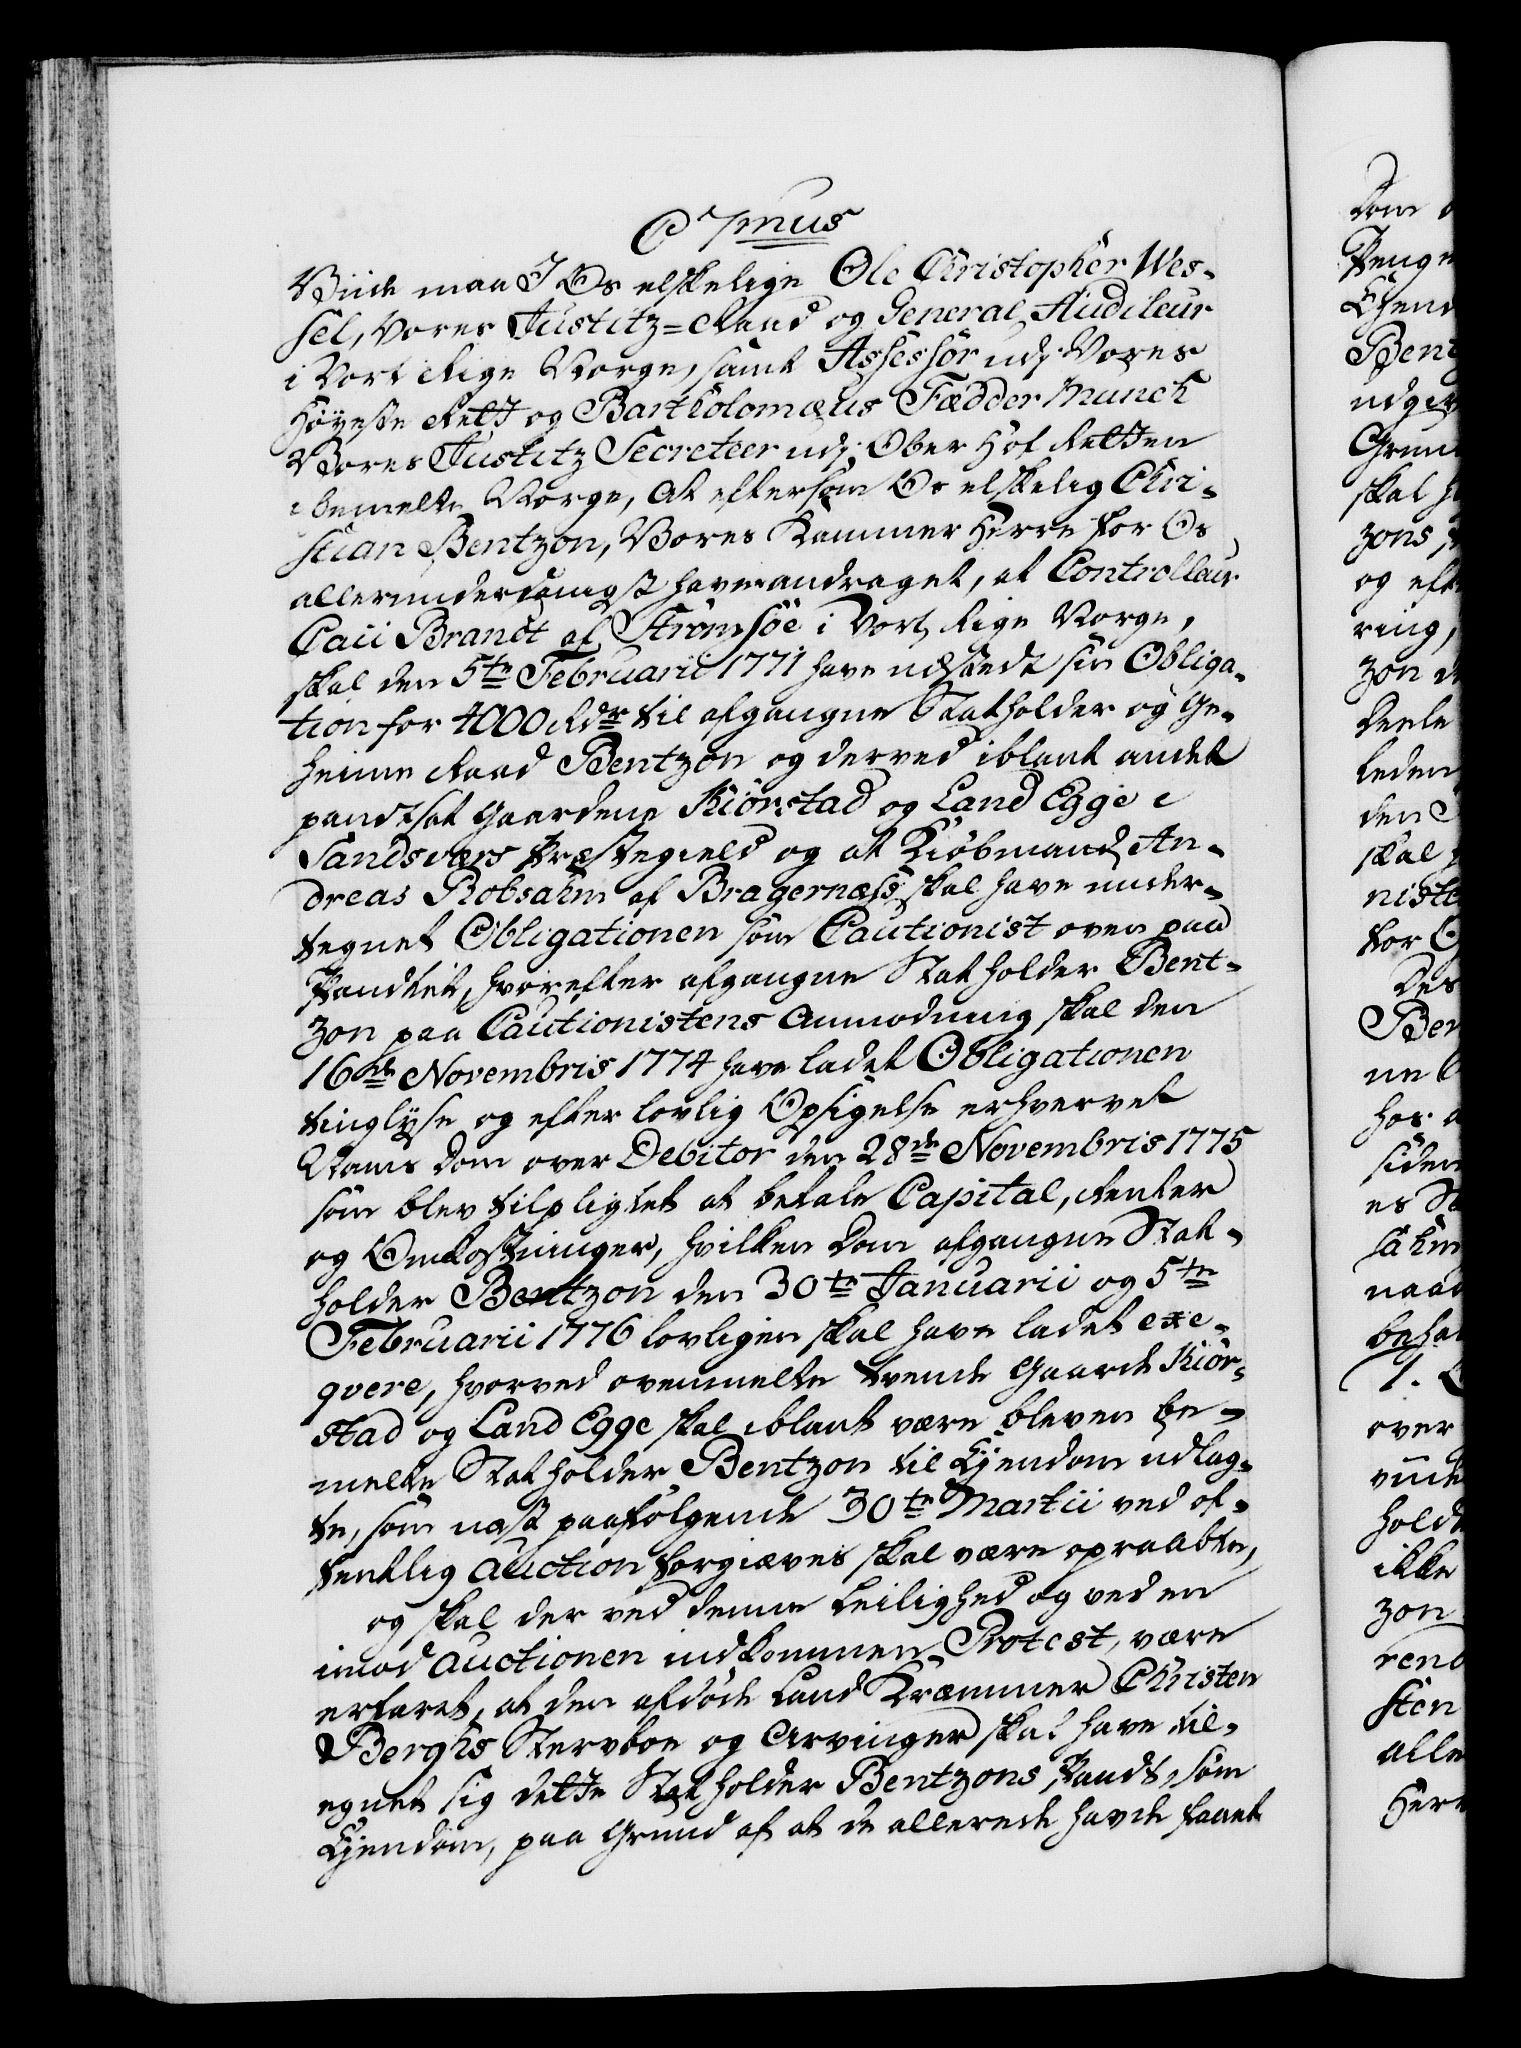 C 7mus
Viide maa I Os elskelige Ole Christopher Wes-
sel, Vores Justitz-Raad og General Auditeur
i Vort Rige Norge, samt Assessor udj Vores
Höyeste Rett og Bartholomæus Fædder Munch
Vores Justitz Secreteer udj Ober Hof Retten
i bemelte Norge, at eftersom Os elskelig Chri-
stian Bentzon, Vores Kammer Herre for Os
allerunderdanigst haver andraget, at Controlleur
Paii Brandt af Strömsöe i Vort Rige Norge,
skal den 5te Februarii 1771 have udstædt sin Obliga-
tion for 4000 Rdr til afgangne Statholder og Ge-
heime Raad Bentzon og derved iblant andet
pandtsat Gaardene Kiörstad og Land Egge i
Sandsværs Præstegield og at Kiöbmand An-
dreas Robsahm af Bragernæss skal have under-
tegnet Obligationen som Cautionist oven paa
Pandtet, hvorefter afgangne Statholder Bent-
zon paa Cautionistens Anmodning skal den
16de Novembris 1774 have ladet Obligationen
tinglyse og efter lovlig Opsigelse erhvervet
Nams Dom over Debitor den 28de Novembris 1775
som blev tilpligtet at betale Capital, Renter
og Omkostninger, hvilken Dom afgangne Stat-
holder Bentzon den 30te Januarii og 5te
Februarii 1776 lovligen skal have ladet exe-
qvere, hvorved ovenmelte tvende Gaarde Kiör-
stad og Land Egge skal iblant være bleven be-
melte Statholder Bentzon til Ejendom udlag-
te, som næst paafölgende 30te Martii ved of-
fentlig Auction forgiæves skal være opraabte,
og skal der ved denne Leilighed og ved en
imod Auctionen indkommen Protest, være
erfaret, at den afdöde Land Kræmmer Christen
Berghs Stervboe og Arvinger skal have til-
egnet sig dette Statholder Bentzons Pandt, som
Ejendom, paa Grund af at de allerede havde faaet
Dom
Penge
Ejend
Bent
udgiv
Grun
skal
zons
og eft
ring,
zon
Deele
leden
den
skal
niste
for
Des
Ber
ne
hos
siden
es
sahm
naad
behag
1.
over
viide
holde
ikke
zon
rend
sten
alle
Herr